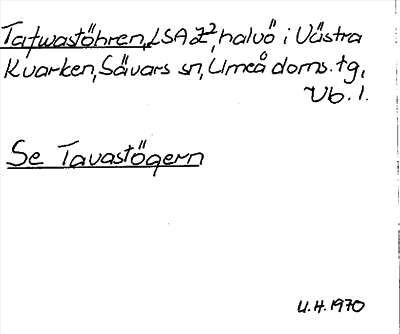 Tafwastöhren, LSA Z², halvö i Västra
Kvarken, Sävars sn, Umeå doms. tg,
Vb. l.
Se Tavastögern
U.H. 1970